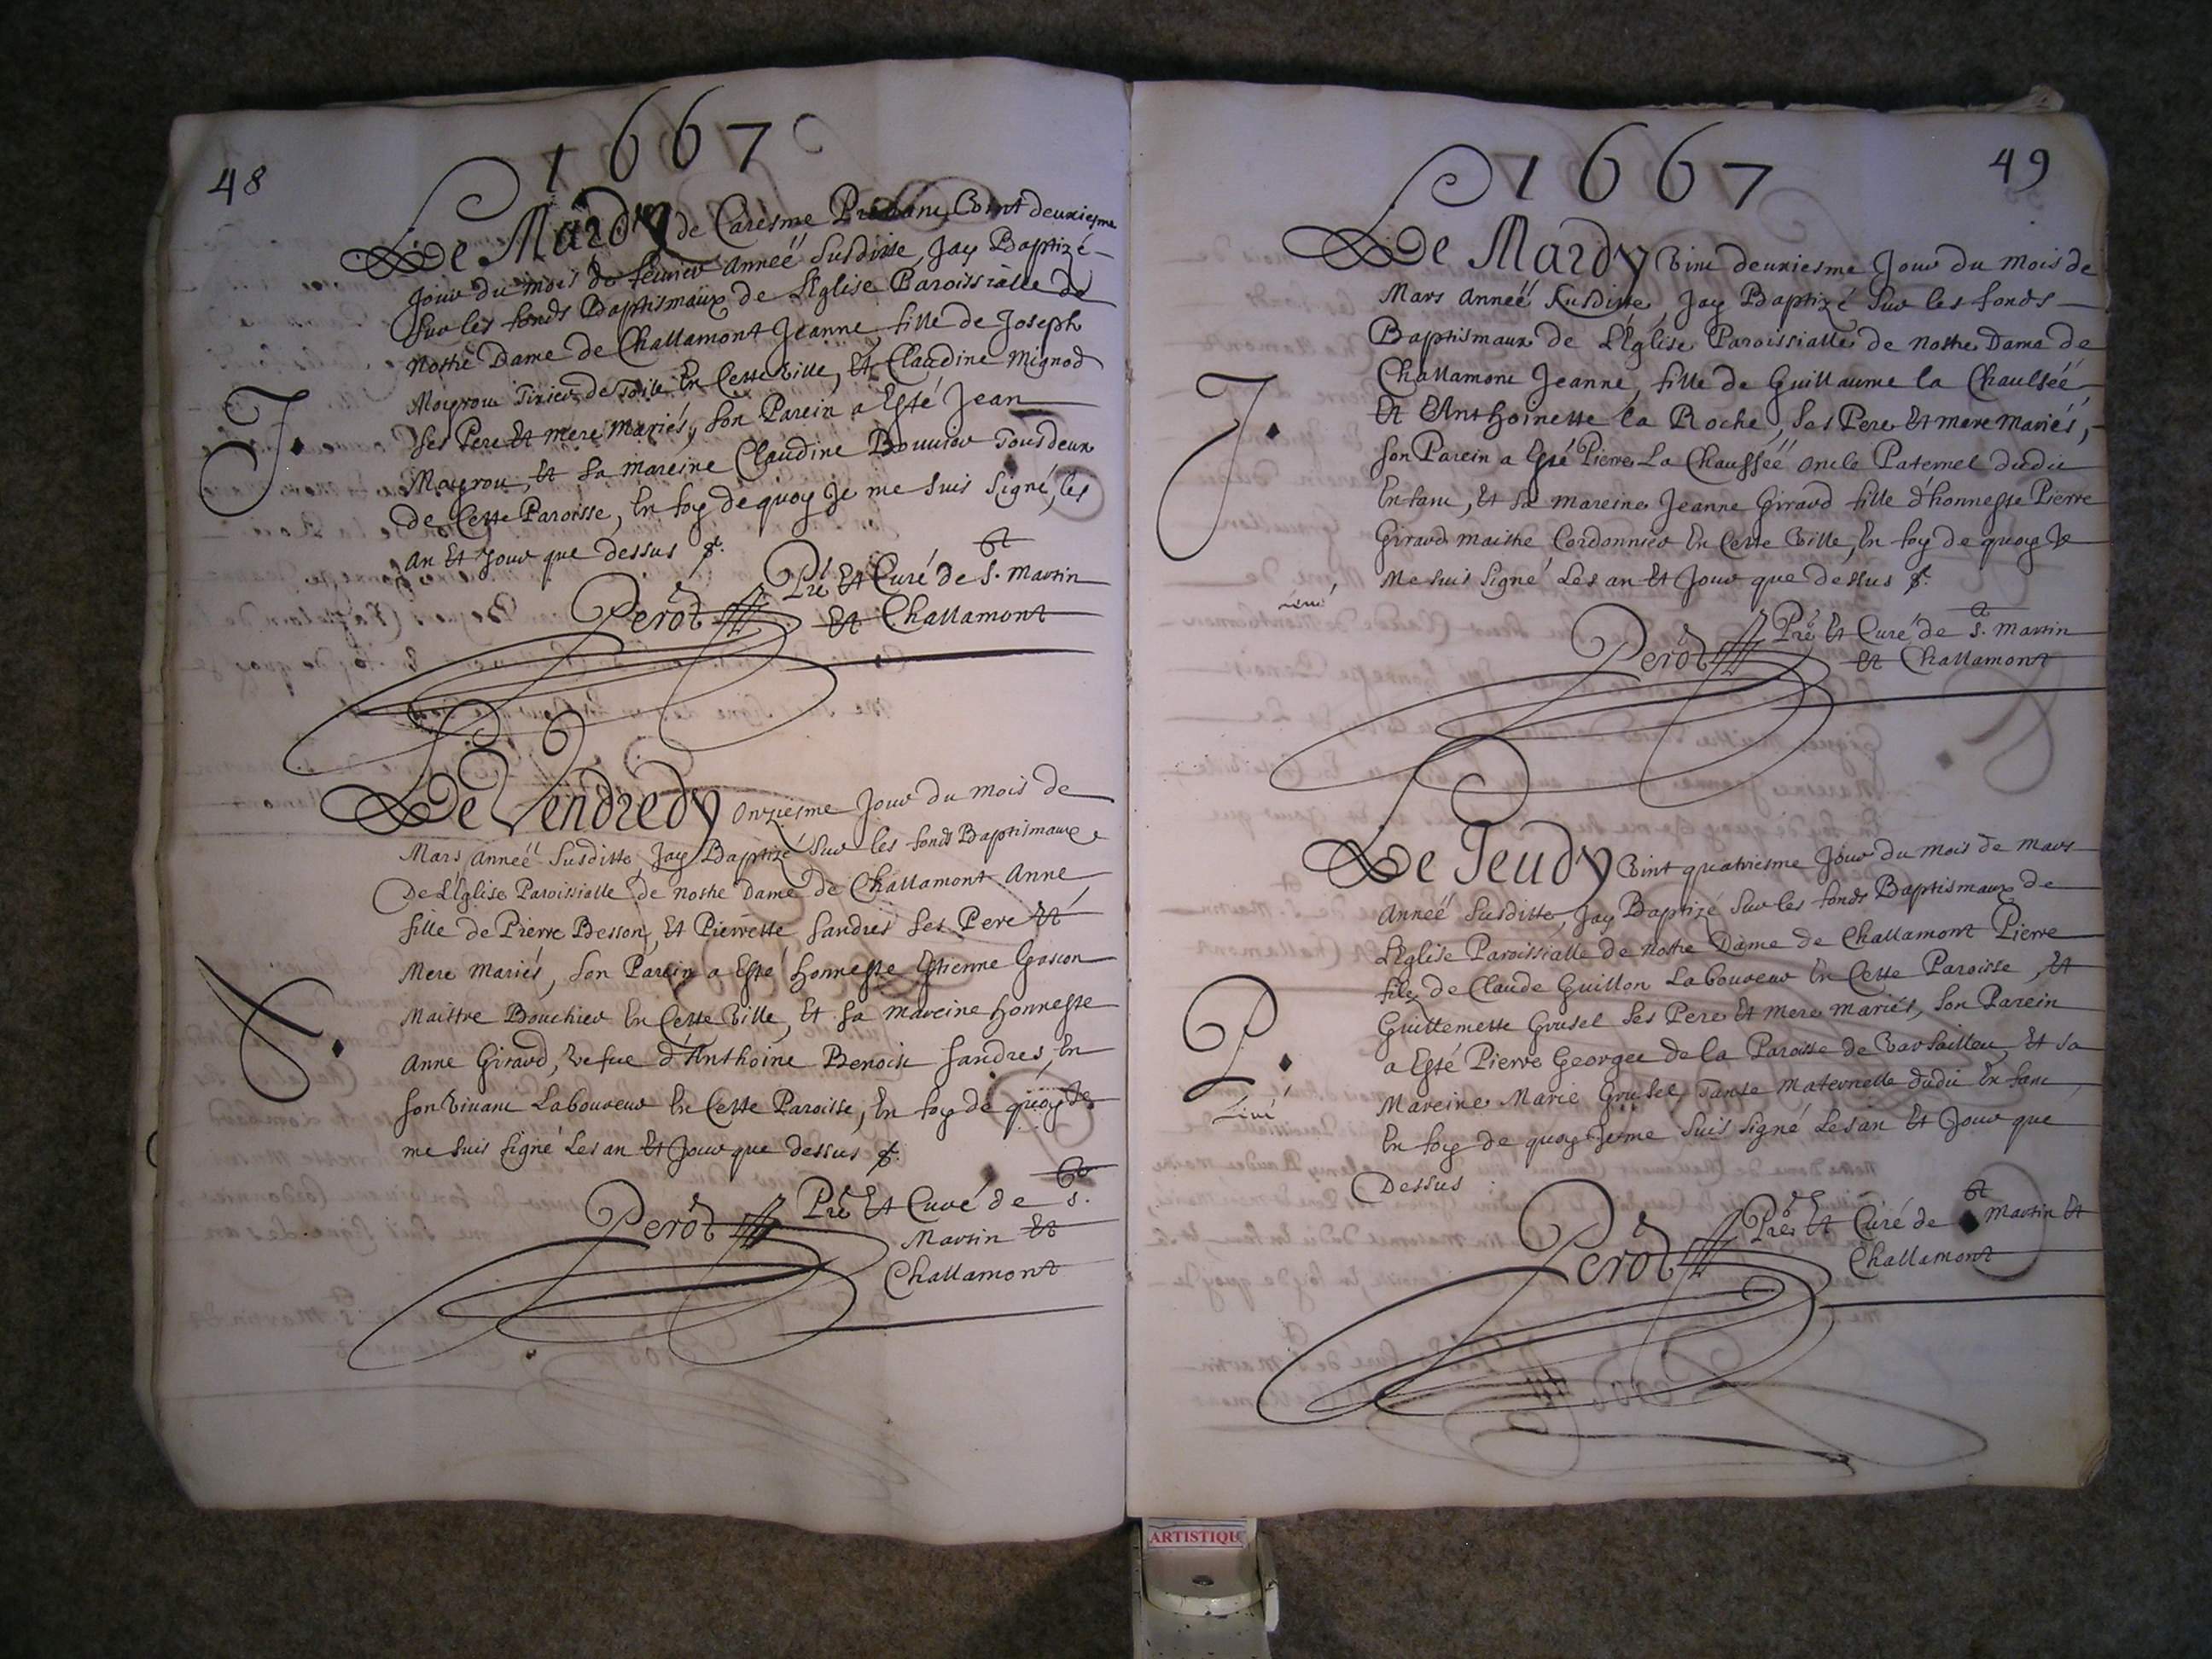 48
1667
Le Mardy de Caresme Prenant Vint deuxiesme
Jour du mois de feuvier Anneé Susditte, Jay Baptizé
Sur les fonds Baptismaux de LEglise Paroissialle de
Nostre Dame de Challamont Jeanne, fille de Joseph
Mayrou Tixier de Toile En Cette Ville, Et Claudine Mignod
Ses Pere Et mere Mariés, Son Parein a Esté Jean
Mayrou, Et Sa Mareine Claudine Bouvier Tous deux
de Cette Paroisse, En foy de quoy Je me suis Signé, les
an Et Jour que dessus
J.
Perot Pre Et Curé de St. Martin
Et Challamont
Le Vendredy Onziesme Jour du Mois de
Mars Anneé Susditte Jay Baptizé Sur les fonds Baptismaux
De LEglise Paroissialle de Nostre Dame de Challamont Anne
fille de Pierre Besson, Et Pierrette Sandres Ses Pere Et
Mere Mariés, Son Parein a Esté honneste Estienne Gascon
Maittre Bouchier En Cette Ville, Et Sa Mareine honneste
Anne Giraud, Vefue d'Anthoine Benoist Sandres, En
Son Vivant Laboureur En Cette Paroisse, En foy de quoy Je
me suis Signé Les an Et Jour que dessus
A.
Perot Pre Et Curé de St.
Martin Et
Challamont
1667
49
Le Mardy Vint deuxiesme Jour du Mois de
Mars Anneé Susditte, Jay Baptizé Sur les fonds
Baptismaux de LEglise Paroissialle de Nostre Dame de
Challamont Jeanne, fille de Guillaume la Chausseé
Et Anthoinette la Roche, Ses Pere Et mere Mariés,
Son Parein a Esté Pierre La Chausseé Oncle Paternel dudit
Enfant, Et Sa Mareine Jeanne Giraud fille d'honneste Pierre
Giraud Maistre Cordonnier En Cette Ville, En foy de quoy Je
Me suis Signé Les an Et Jour que dessus
J.
Perot Pre Et Curé de St. Martin
Et Challamont
Le Jeudy Vint quatriesme Jour du Mois de Mars
Anneé Susditte, Jay Baptizé Sur les fonds Baptismaux de
LEglise Paroissialle de Nostre Dame de Challamont Pierre
filz de Claude Guillon Laboureur En Cette Paroisse, Et
Guillemette Grusel Ses Pere Et Mere Mariés, Son Parein
a Esté Pierre George de la Paroisse de Varsailleu, Et Sa
Mareine Marie Grusel, Tante Maternelle dudit Enfant
En foy de quoy Je me suis Signé Les an Et Jour que
Dessus
P.
Perot Pre Et Curé de St Martin Et
Challamont
ARTISTIQU